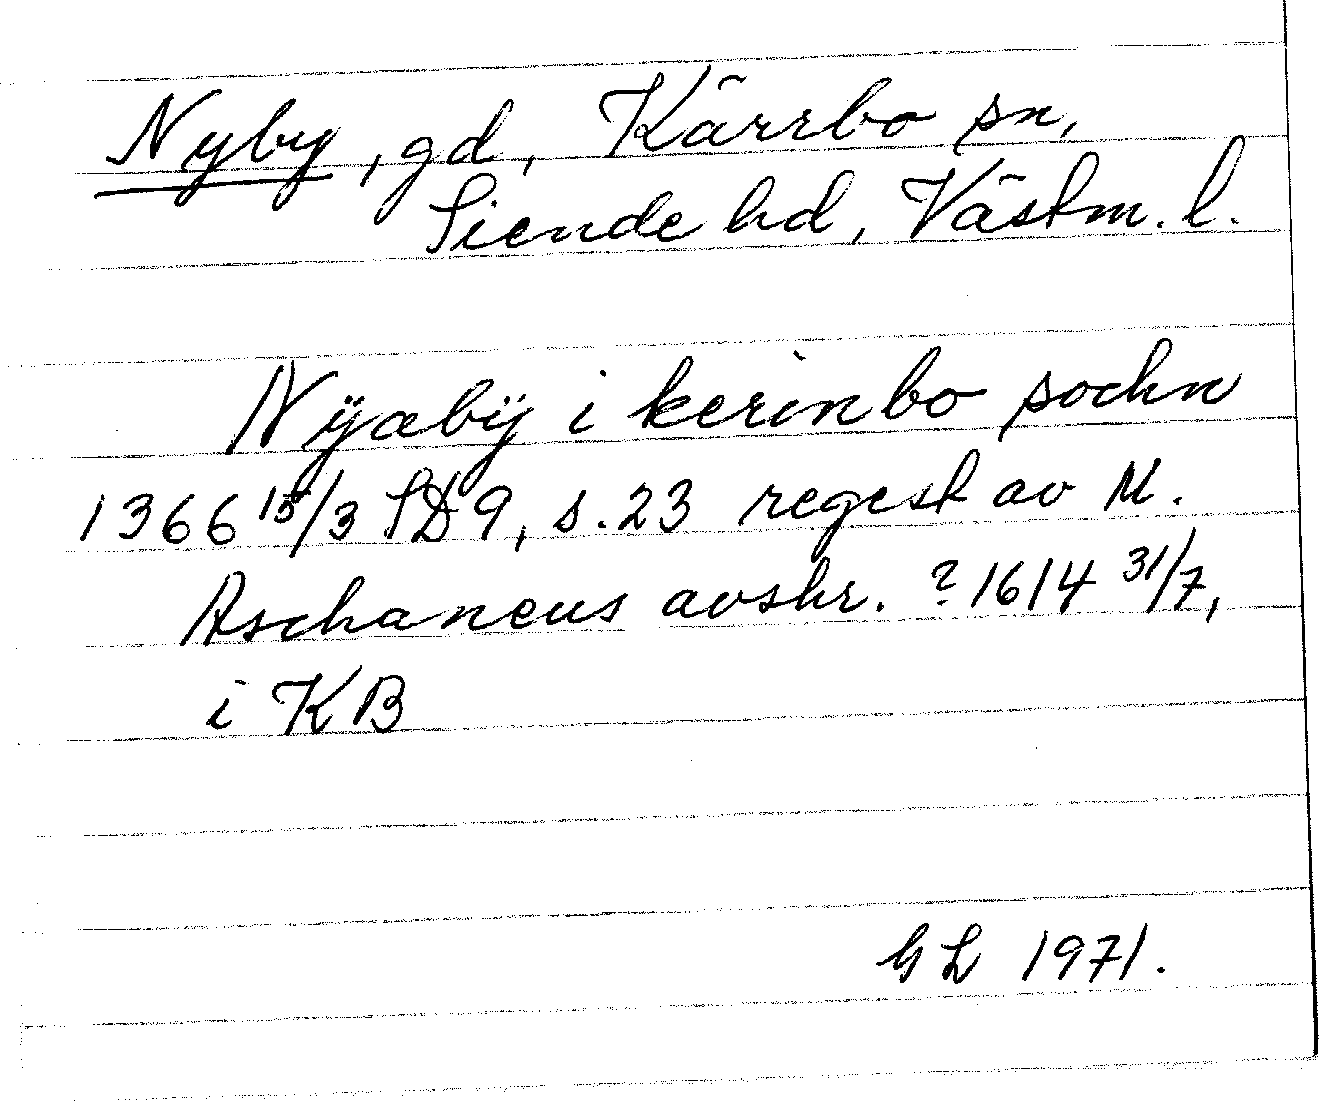 Nyby, gd, Kärrbo sn,
Siende hd, Västm. l.
Nÿabÿ i kerinbo sochn
1366 15/3 SD 9, s. 23 regest av M.
Aschaneus avskr. ? 1614 31/7,
i KB
GL 1971.